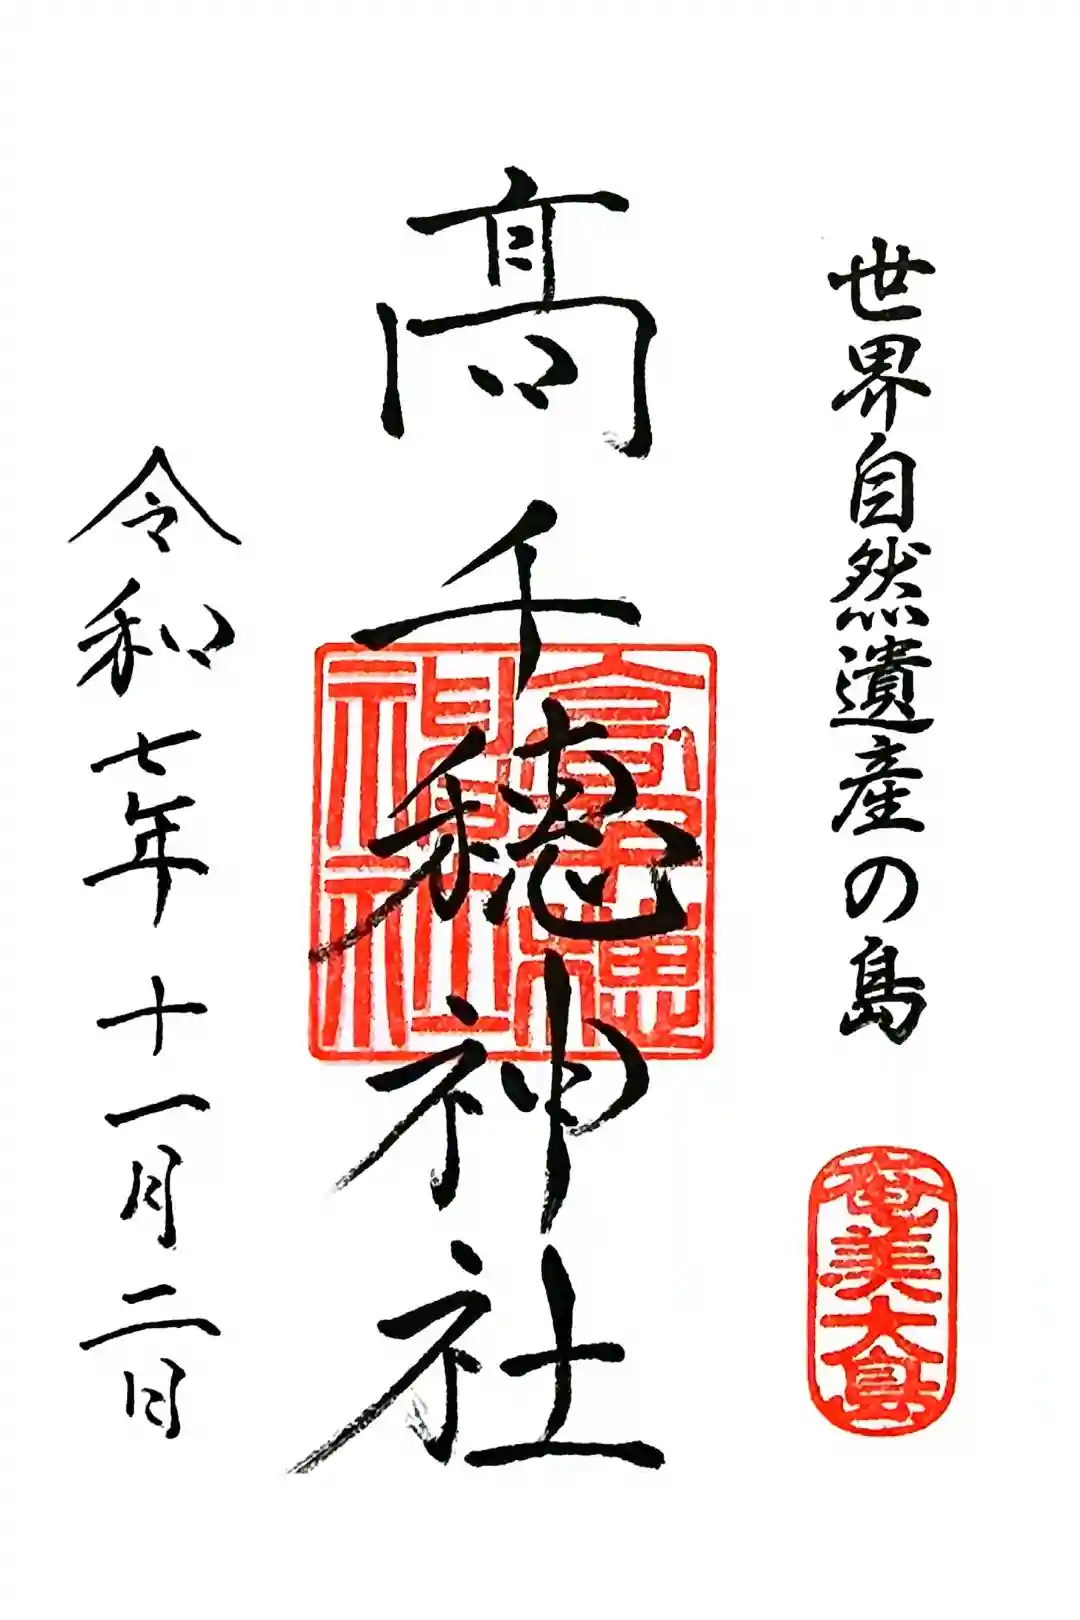 世界自然遺産の島
奄美大島
高千穂神社
高千穂
神社
令和七年十一月二日